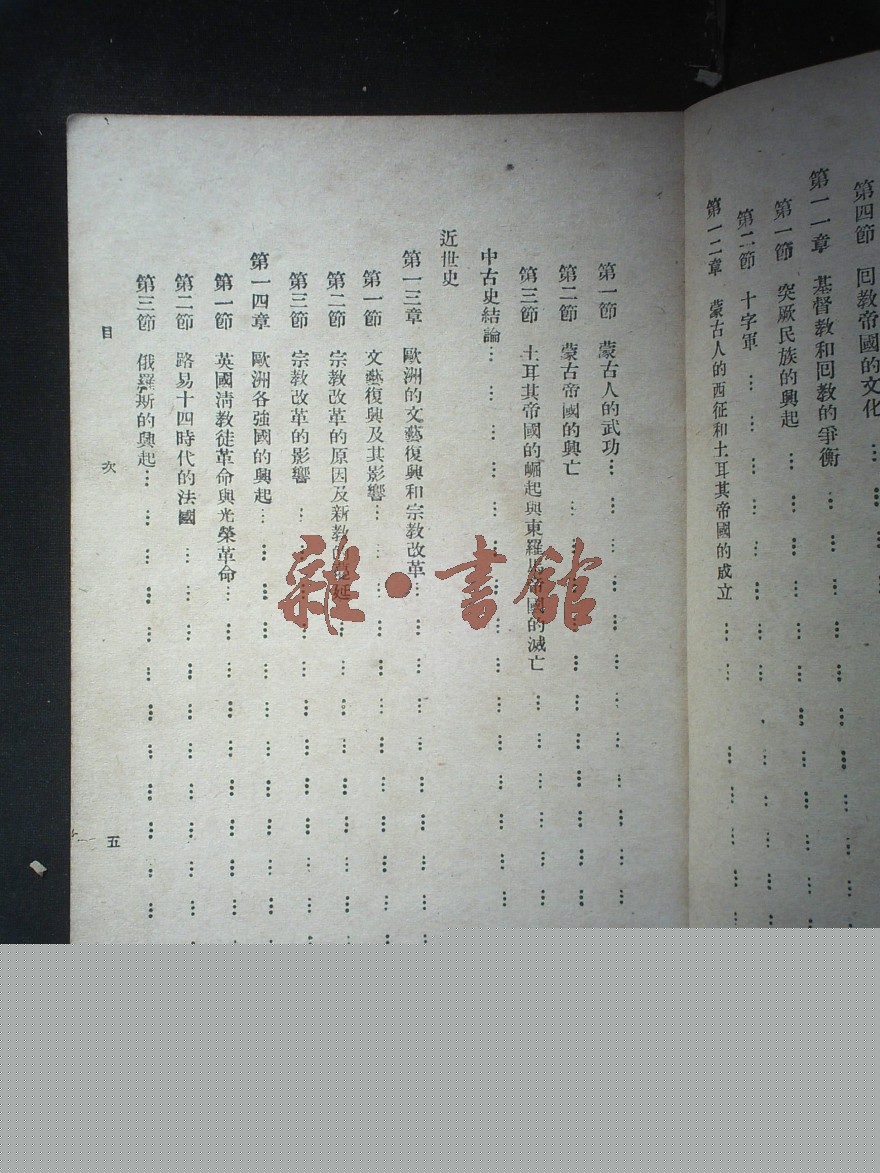 第四節 回教帝國的文化……
第一一章 基督教和回教的爭衡
第一節 突厥民族的興起
第二節 十字軍……
第一二章 蒙古人的西征和土耳其帝國的成立……
第一節 蒙古人的武功……
第二節 蒙古帝國的興亡……
第三節 土耳其帝國的崛起與東羅馬帝國的滅亡……
中古史結論……
近世史
第一三章 歐洲的文藝復興和宗教改革……
第一節 文藝復興及其影響……
第二節 宗教改革的原因及新教的蔓延……
第三節 宗教改革的影響……
第一四章 歐洲各強國的興起……
第一節 英國清教徒革命與光榮革命……
第二節 路易十四時代的法國……
第三節 俄羅斯的興起……
目 次 五
雜·書館